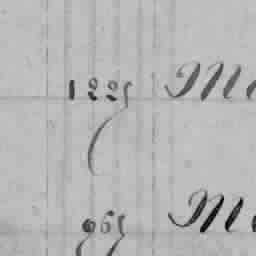 1225 Ma
965 Ma